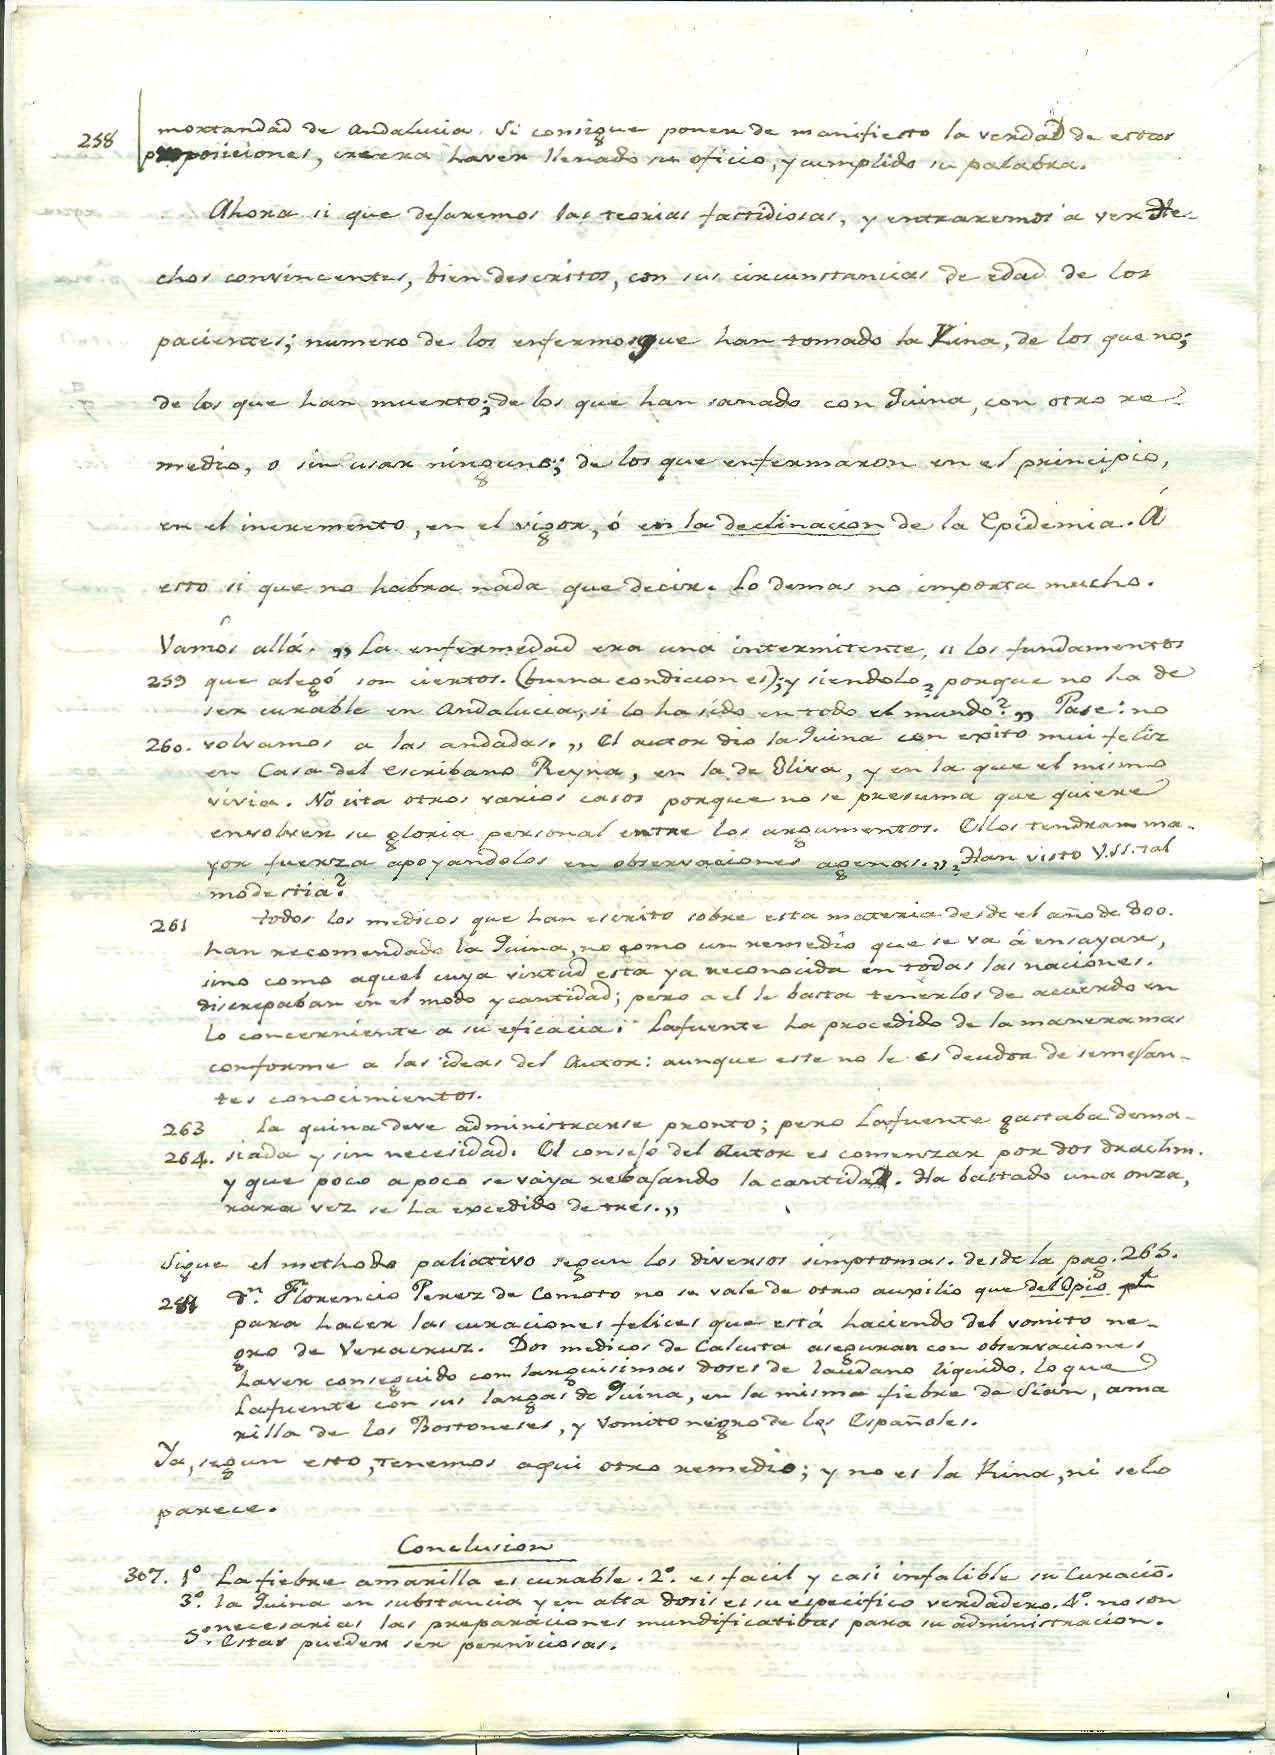 258 mortandad de Andalucia. Si consigue poner de manifiesto la verdad de estas
proposiciones, creera haver llenado su oficio, y cumplido su palabra.
Ahora si que desaremos las teorias fastidiosas, y entraremos a ver He-
chos convincentes, bien descritos, con sus circunstancias de edad de los
pacientes; numero de los enfermos que han tomado la Kina, de los que no;
de los que han muerto; de los que han sanado con Quina, con otro re-
medio, o sin usar ninguno; de los que enfermaron en el principio,
en el incremento, en el vigor, ó en la declinacion de la Epidemia. Á
esto si que no habra nada que decir. Lo demas no importa mucho.
Vamos allá. „ La enfermedad era una intermitente, si los fundamentos
259 que alegó son ciertos. (buena condicion es); y siendolo, porque no ha de
ser curable en Andalucia, si lo ha sido en todo el mundo? „ Pase: no
260. volvamos a las andadas. „ El autor dio la Quina con exito mui feliz
en Casa del escribano Reyna, en la de Oliva, y en la que el mismo
vivia. No cita otros varios casos porque no se presuma que quiere
envolver su gloria personal entre los argumentos. Ellos tendran ma-
yor fuerza apoyandolos en observaciones agenas. „ ¿Han visto V.SS. tal
modestia?
261 todos los medicos que han escrito sobre esta materia desde el año de 800.
han recomendado la Quina, no como un remedio que se va á ensayar,
sino como aquel cuya virtud esta ya reconocida en todas las naciones.
discrepaban en el modo y cantidad; pero a el le basta tenerlos de acuerdo en
lo concerniente a su eficacia. Lafuente ha procedido de la manera mas
conforme a las ideas del Autor: aunque este no le es deudor de semesan-
tes conocimientos.
263 La quina deve administrarse pronto; pero Lafuente gastaba dema-
264. siada y sin necesidad. El conseso del Autor es comenzar por dos drachm.
y que poco a poco se vaya rebasando la cantidad. Ha bastado una onza,
rara vez se ha excedido de tres. „
Sigue el methodo paliativo segun los diversos simptomas. desde la pag. 265.
Dn. Florencio Perez de Comoto no se vale de otro auxilio que del Opio
para hacer las curaciones felices que está haciendo del vomito ne-
gro de Veracruz. Dos medicos de Calcuta aseguran con observaciones
haver conseguido con larguisimas doses de laudano liquido, lo que
Lafuente con sus largas de Quina, en la misma fiebre de Sian, ama
rilla de los Bostoneses, y Vomito negro de los Españoles.
Ya, segun esto, tenemos aqui otro remedio; y no es la Kina, ni se lo
parece.
Conclusion
307. 1º La fiebre amarilla es curable. 2º. es facil y casi infalible su Curació̄.
3º. la Quina en substancia y en alta dosis es su especifico verdadero. 4º. no son
necesarias las preparaciones mundificatibas para su administracion.
5º. Estas pueden ser perniciosas.